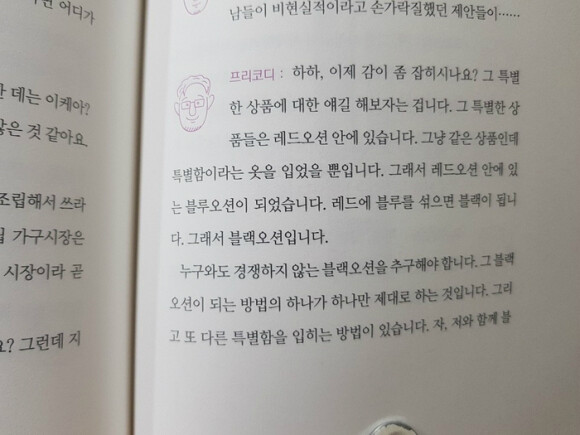 어디가
데는 이케아?
않은 것 같아요.
조립해서 쓰라
가구시장은
시장이라 곧
요? 그런데 지
남들이 비현실적이라고 손가락질했던 제안들이……
프리코디 : 하하, 이제 감이 좀 잡히시나요? 그 특별
한 상품에 대한 얘길 해보자는 겁니다. 그 특별한 상
품들은 레드오션 안에 있습니다. 그냥 같은 상품인데
특별함이라는 옷을 입었을 뿐입니다. 그래서 레드오션 안에 있
는 블루오션이 되었습니다. 레드에 블루를 섞으면 블랙이 됩니
다. 그래서 블랙오션입니다.
누구와도 경쟁하지 않는 블랙오션을 추구해야 합니다. 그 블랙
오션이 되는 방법의 하나가 하나만 제대로 하는 것입니다. 그리
고 또 다른 특별함을 입히는 방법이 있습니다. 자, 저와 함께 블